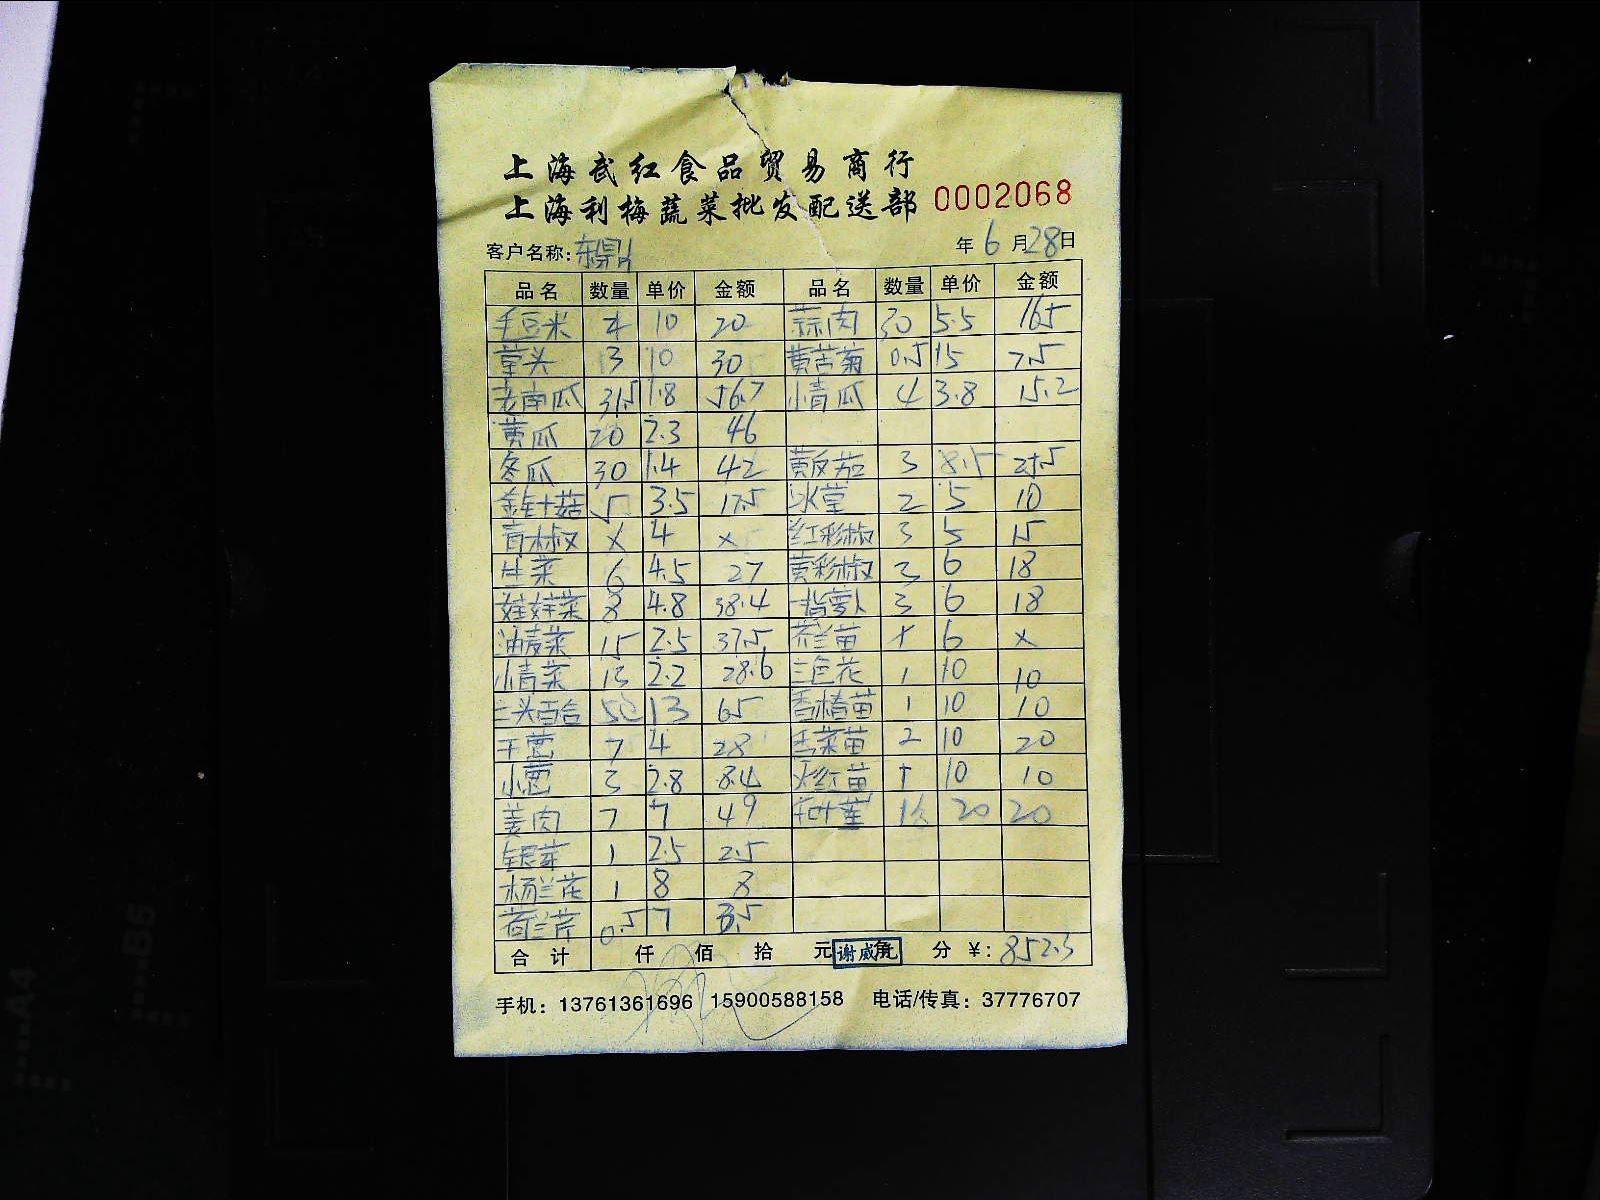 上海武红食品贸易商行
上海利梅蔬菜批发配送部 0002068
客户名称: 年 6 月 28 日
品名 数量 单价 金额 品名 数量 单价 金额
毛豆米 10 20 蒜肉 30 5.5 165
草头 3 10 30 黄苦菊 0.5 15 7.5
老南瓜 31.5 1.8 56.7 小青瓜 4 3.8 15.2
黄瓜 20 2.3 46
冬瓜 30 1.4 42 黄皮茄 3 8.5 25.5
金针菇 5 3.5 17.5 冰草 2 5 10
青椒 x 4 x 红彩椒 3 5 15
生菜 6 4.5 27 黄彩椒 3 6 18
娃娃菜 8 4.8 38.4 指萝卜 3 6 18
油麦菜 15 2.5 37.5 芥兰苗 x 6 x
小青菜 13 2.2 28.6 三色花 1 10 10
兰头百合 50 13 65 香椿苗 1 10 10
干葱 7 4 28 香菜苗 2 10 20
小葱 3 2.8 8.4 火红苗 1 10 10
姜肉 7 7 49 20 20
银芽 1 2.5 2.5
杨兰花 1 8 8
荷兰芹 0.5 7 3.5
合计 仟 佰 拾 元 角 分 ¥: 852.3
手机: 13761361696 15900588158 电话/传真: 37776707